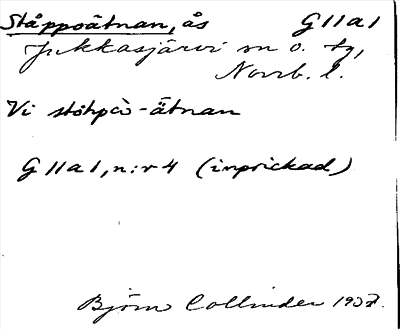 Ståppoätnan, ås G11a1
Jukkasjärvi sn o. tg,
Norrb. l.
Vi stöhpȯ-ätnan
G11a1, n:r 4 (inprickad)
Björn Collinder 1937.